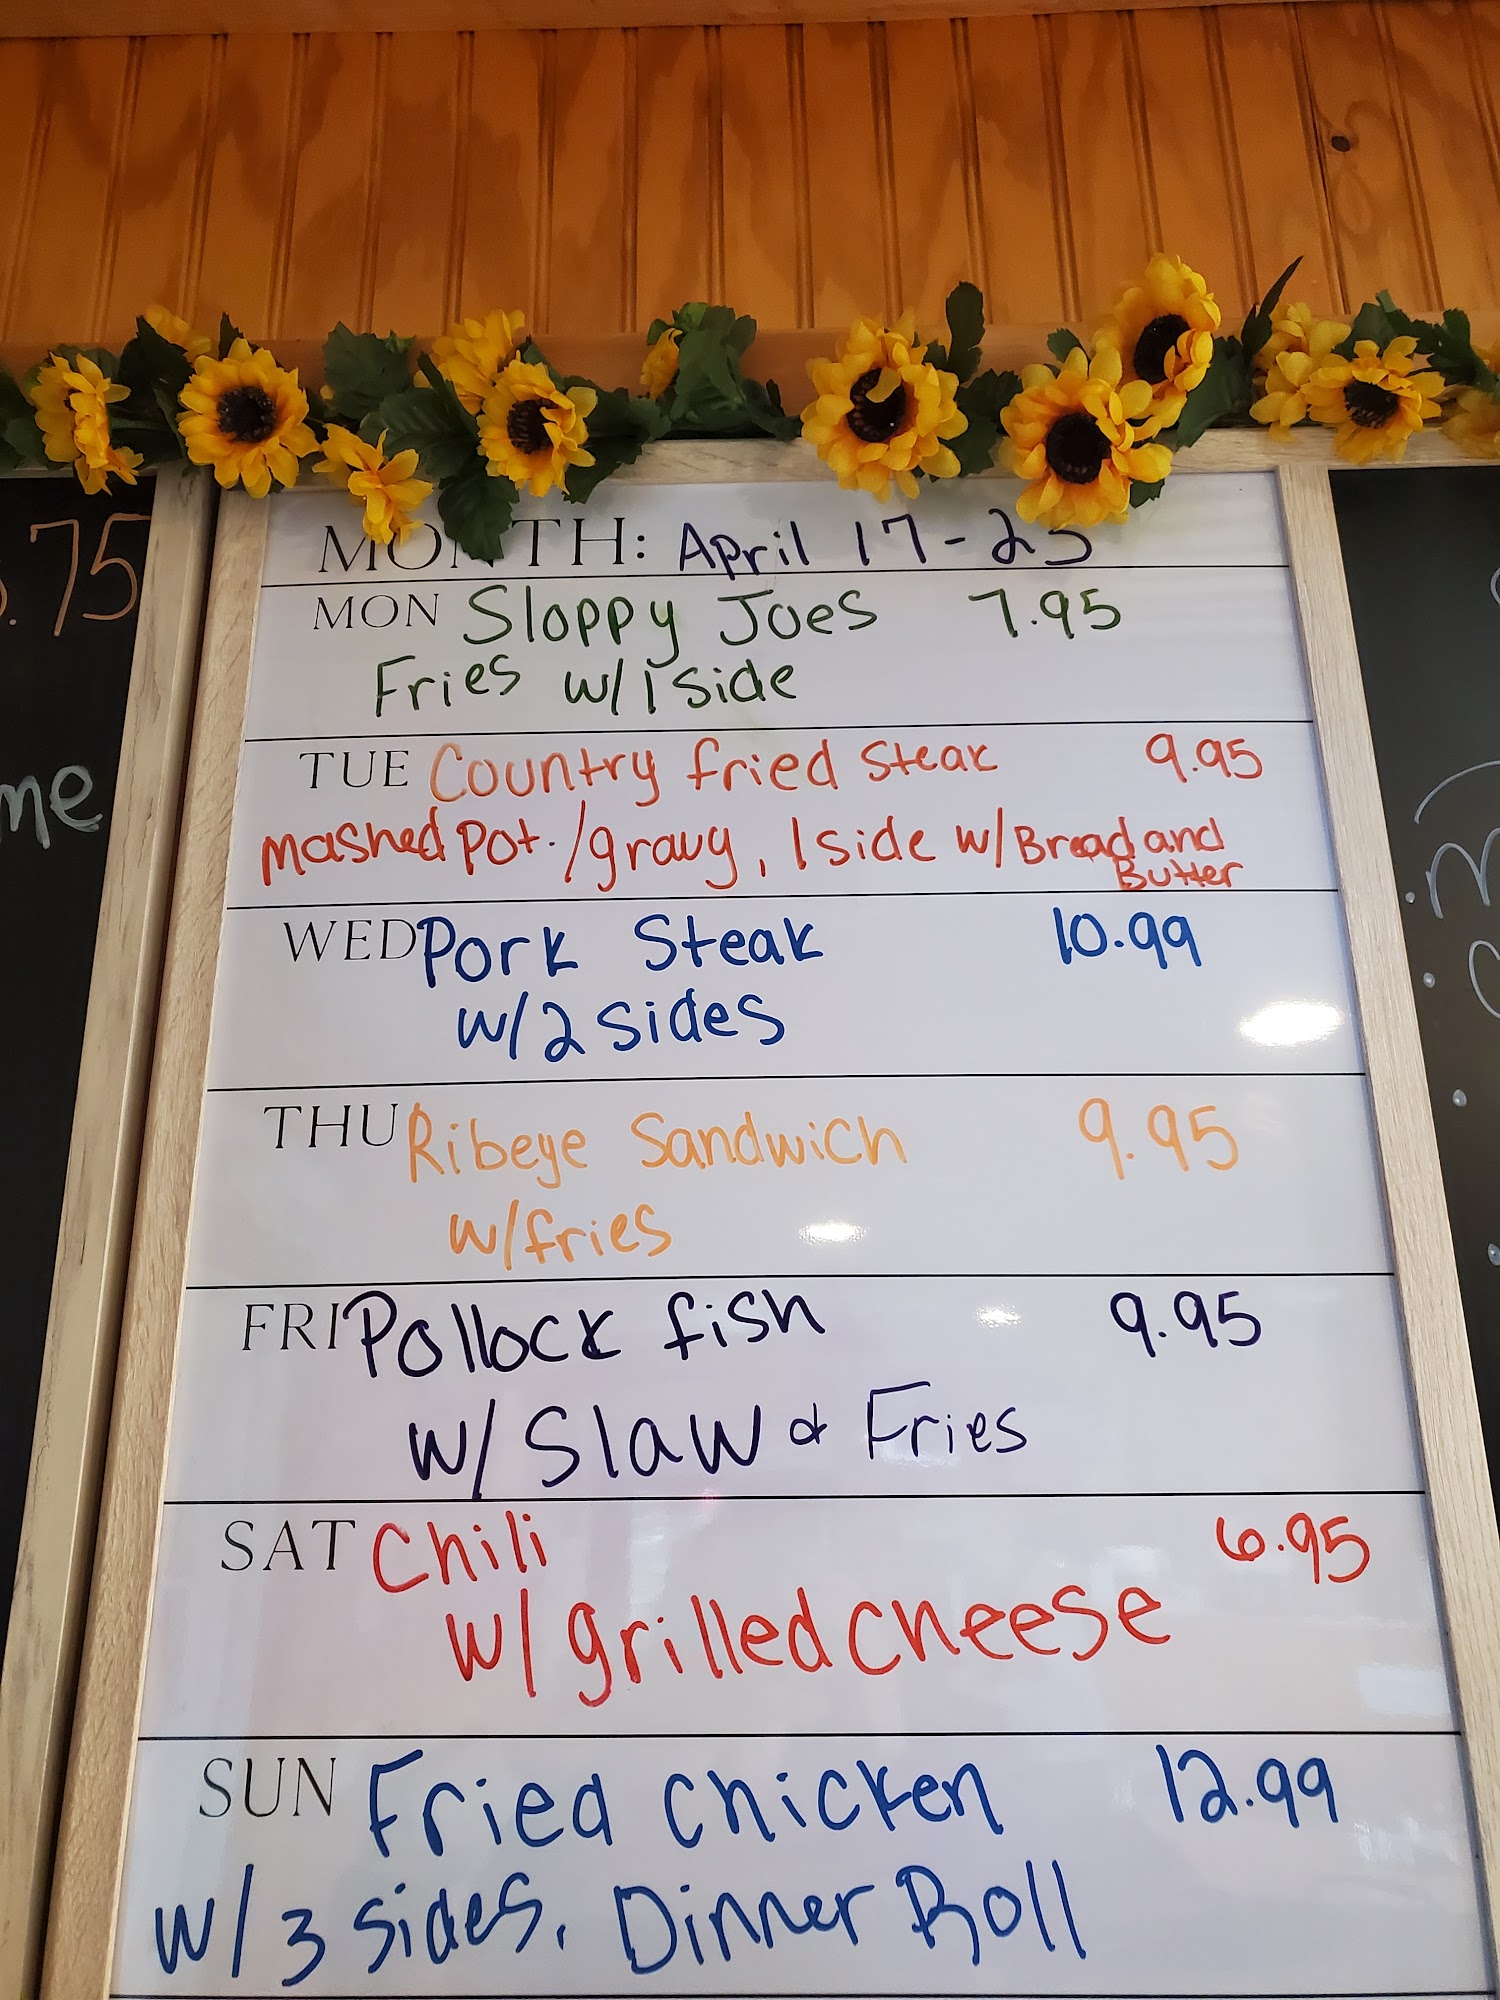 MONTH: April 17-23
MON Sloppy Joes 7.95
Fries w/1 side
TUE Country fried steak 9.95
mashed pot./gravy, 1 side w/Bread and
Butter
WED Pork Steak 10.99
w/2 sides
THU Ribeye Sandwich 9.95
w/fries
FRI Pollock fish 9.95
w/ Slaw & Fries
SAT Chili 6.95
w/grilled cheese
SUN Fried chicken 12.99
w/3 sides, Dinner Roll
.75
me